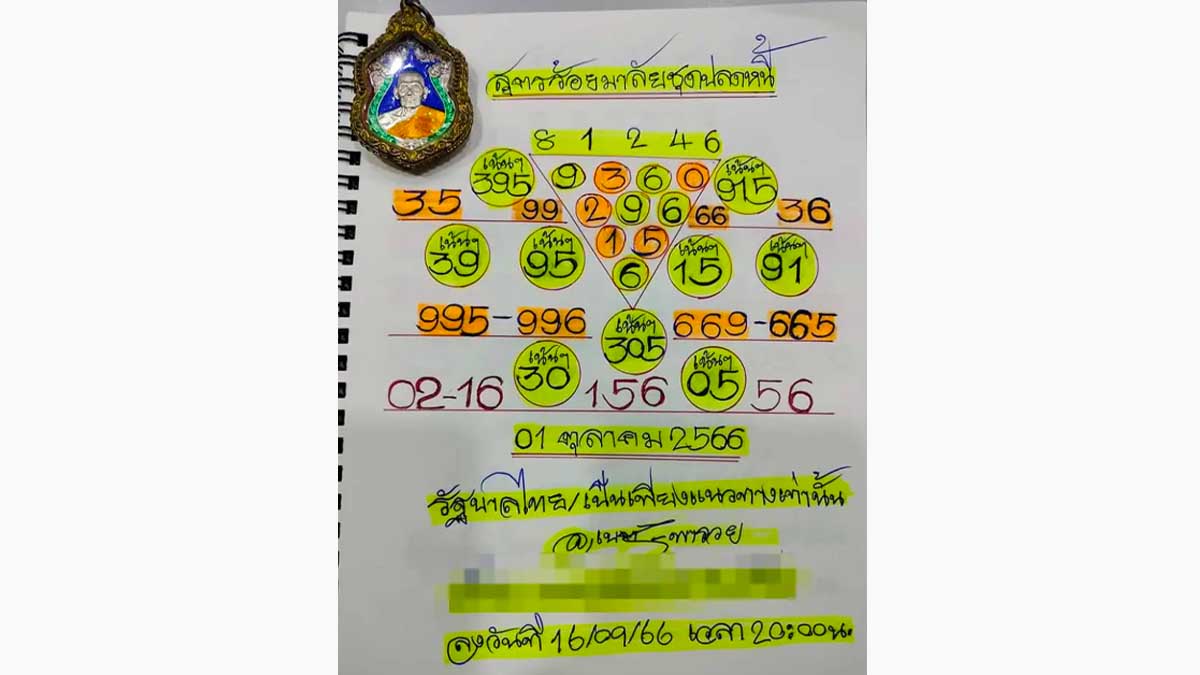 สูตรร้อยมาลัยชุดปลดหนี้
8 1 2 4 6
เน้นๆ 395 9 3 6 0 เน้นๆ 915
35 99 2 9 6 66 36
เน้นๆ 39 เน้นๆ 95 1 5 เน้นๆ 15 เน้นๆ 91
6
995-996 เน้นๆ 305 669-665
02-16 เน้นๆ 30 156 เน้นๆ 05 56
01 ตุลาคม 2566
รัฐบาลไทย/เป็นเพียงแนวทางเท่านั้น
พารวย
ลงวันที่ 16/09/66 เวลา 20:00น.